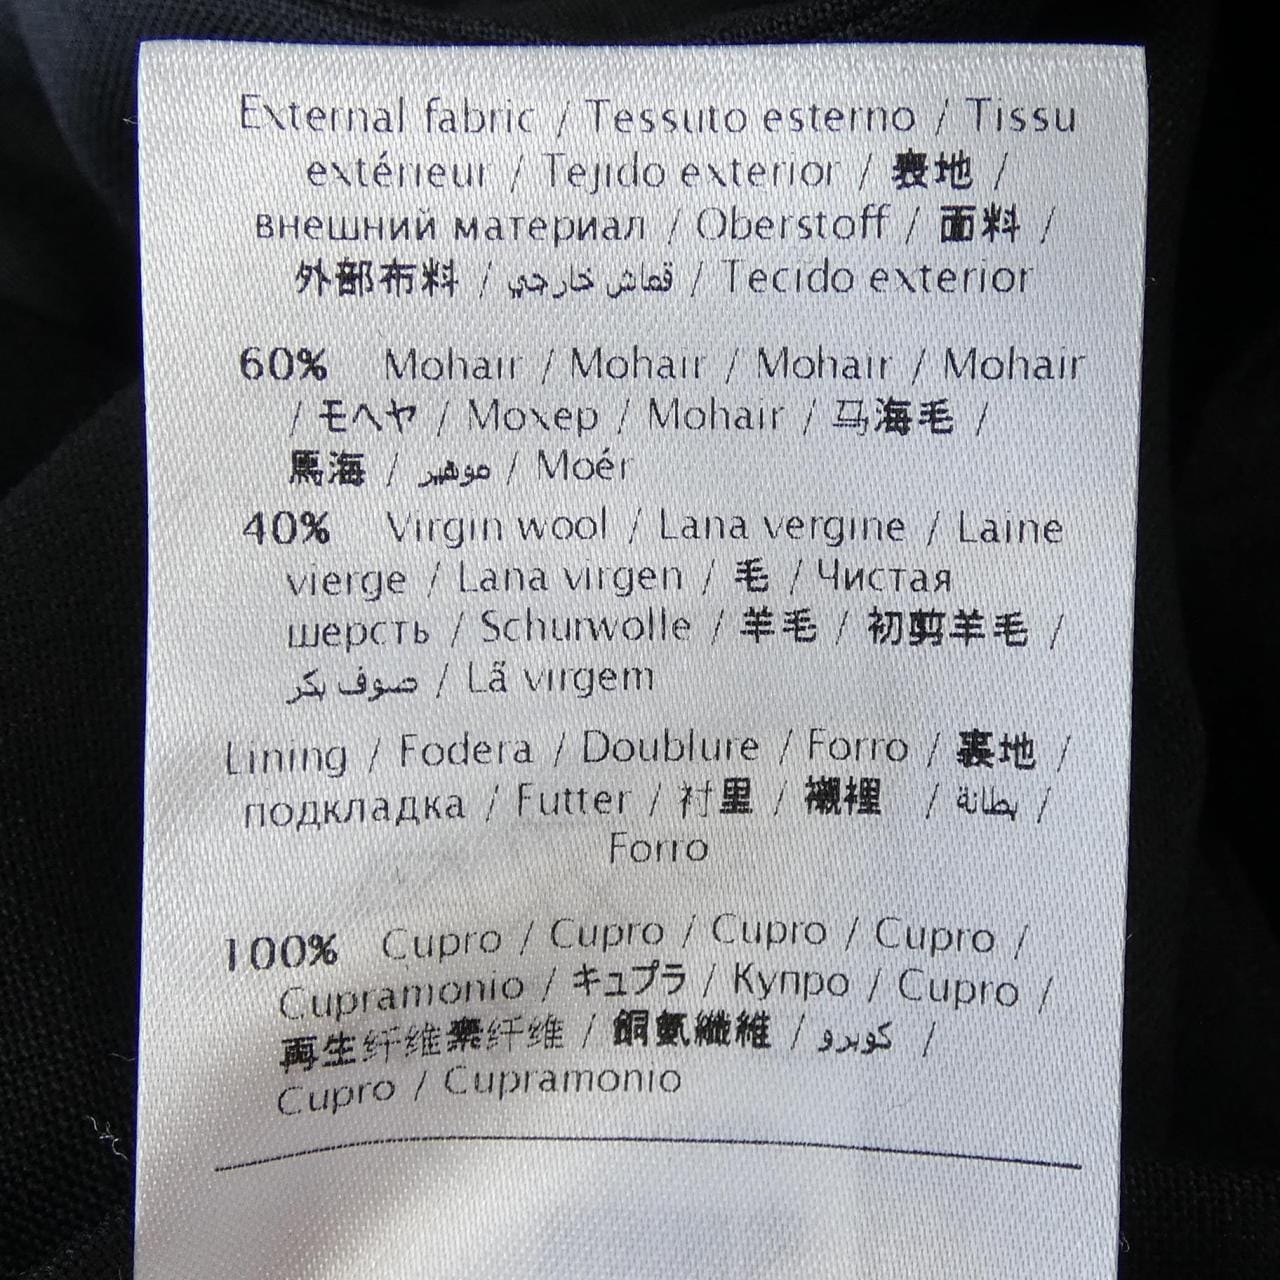 External fabric / Tessuto esterno / Tissu
extérieur / Tejido exterior / 表地 /
внешний материал / Oberstoff / 面料 /
外部布料 / قماش خارجي / Tecido exterior
60% Mohair / Mohair / Mohair / Mohair
/ モヘヤ / Мохер / Mohair / 马海毛 /
馬海 / موهير / Moér
40% Virgin wool / Lana vergine / Laine
vierge / Lana virgen / 毛 / Чистая
шерсть / Schurwolle / 羊毛 / 初剪羊毛 /
صوف بكر / Lã virgem
Lining / Fodera / Doublure / Forro / 裏地 /
подкладка / Futter / 衬里 / 襯裡 / بطانة /
Forro
100% Cupro / Cupro / Cupro / Cupro /
Cupramonio / キュプラ / Купро / Cupro /
再生纤维素纤维 / 銅氨纖維 / كوبرو /
Cupro / Cupramonio